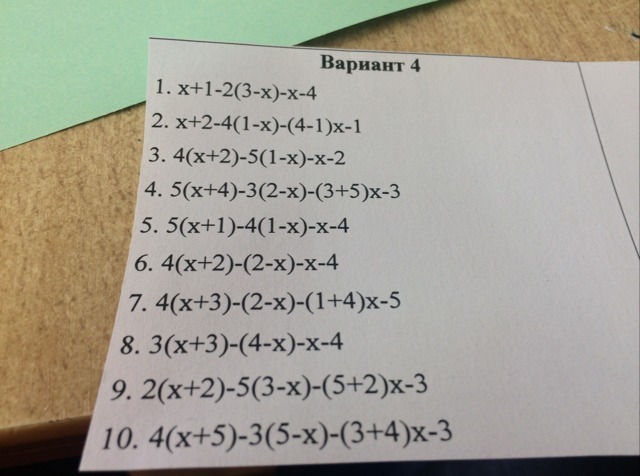 Вариант 4
1. x+1-2(3-x)-x-4
2. x+2-4(1-x)-(4-1)x-1
3. 4(x+2)-5(1-x)-x-2
4. 5(x+4)-3(2-x)-(3+5)x-3
5. 5(x+1)-4(1-x)-x-4
6. 4(x+2)-(2-x)-x-4
7. 4(x+3)-(2-x)-(1+4)x-5
8. 3(x+3)-(4-x)-x-4
9. 2(x+2)-5(3-x)-(5+2)x-3
10. 4(x+5)-3(5-x)-(3+4)x-3